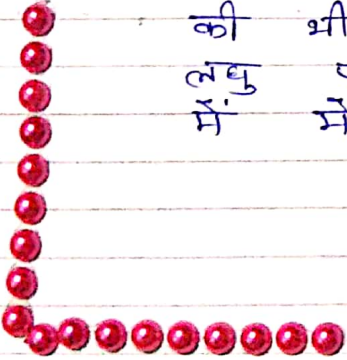 की भी
लघु
में में